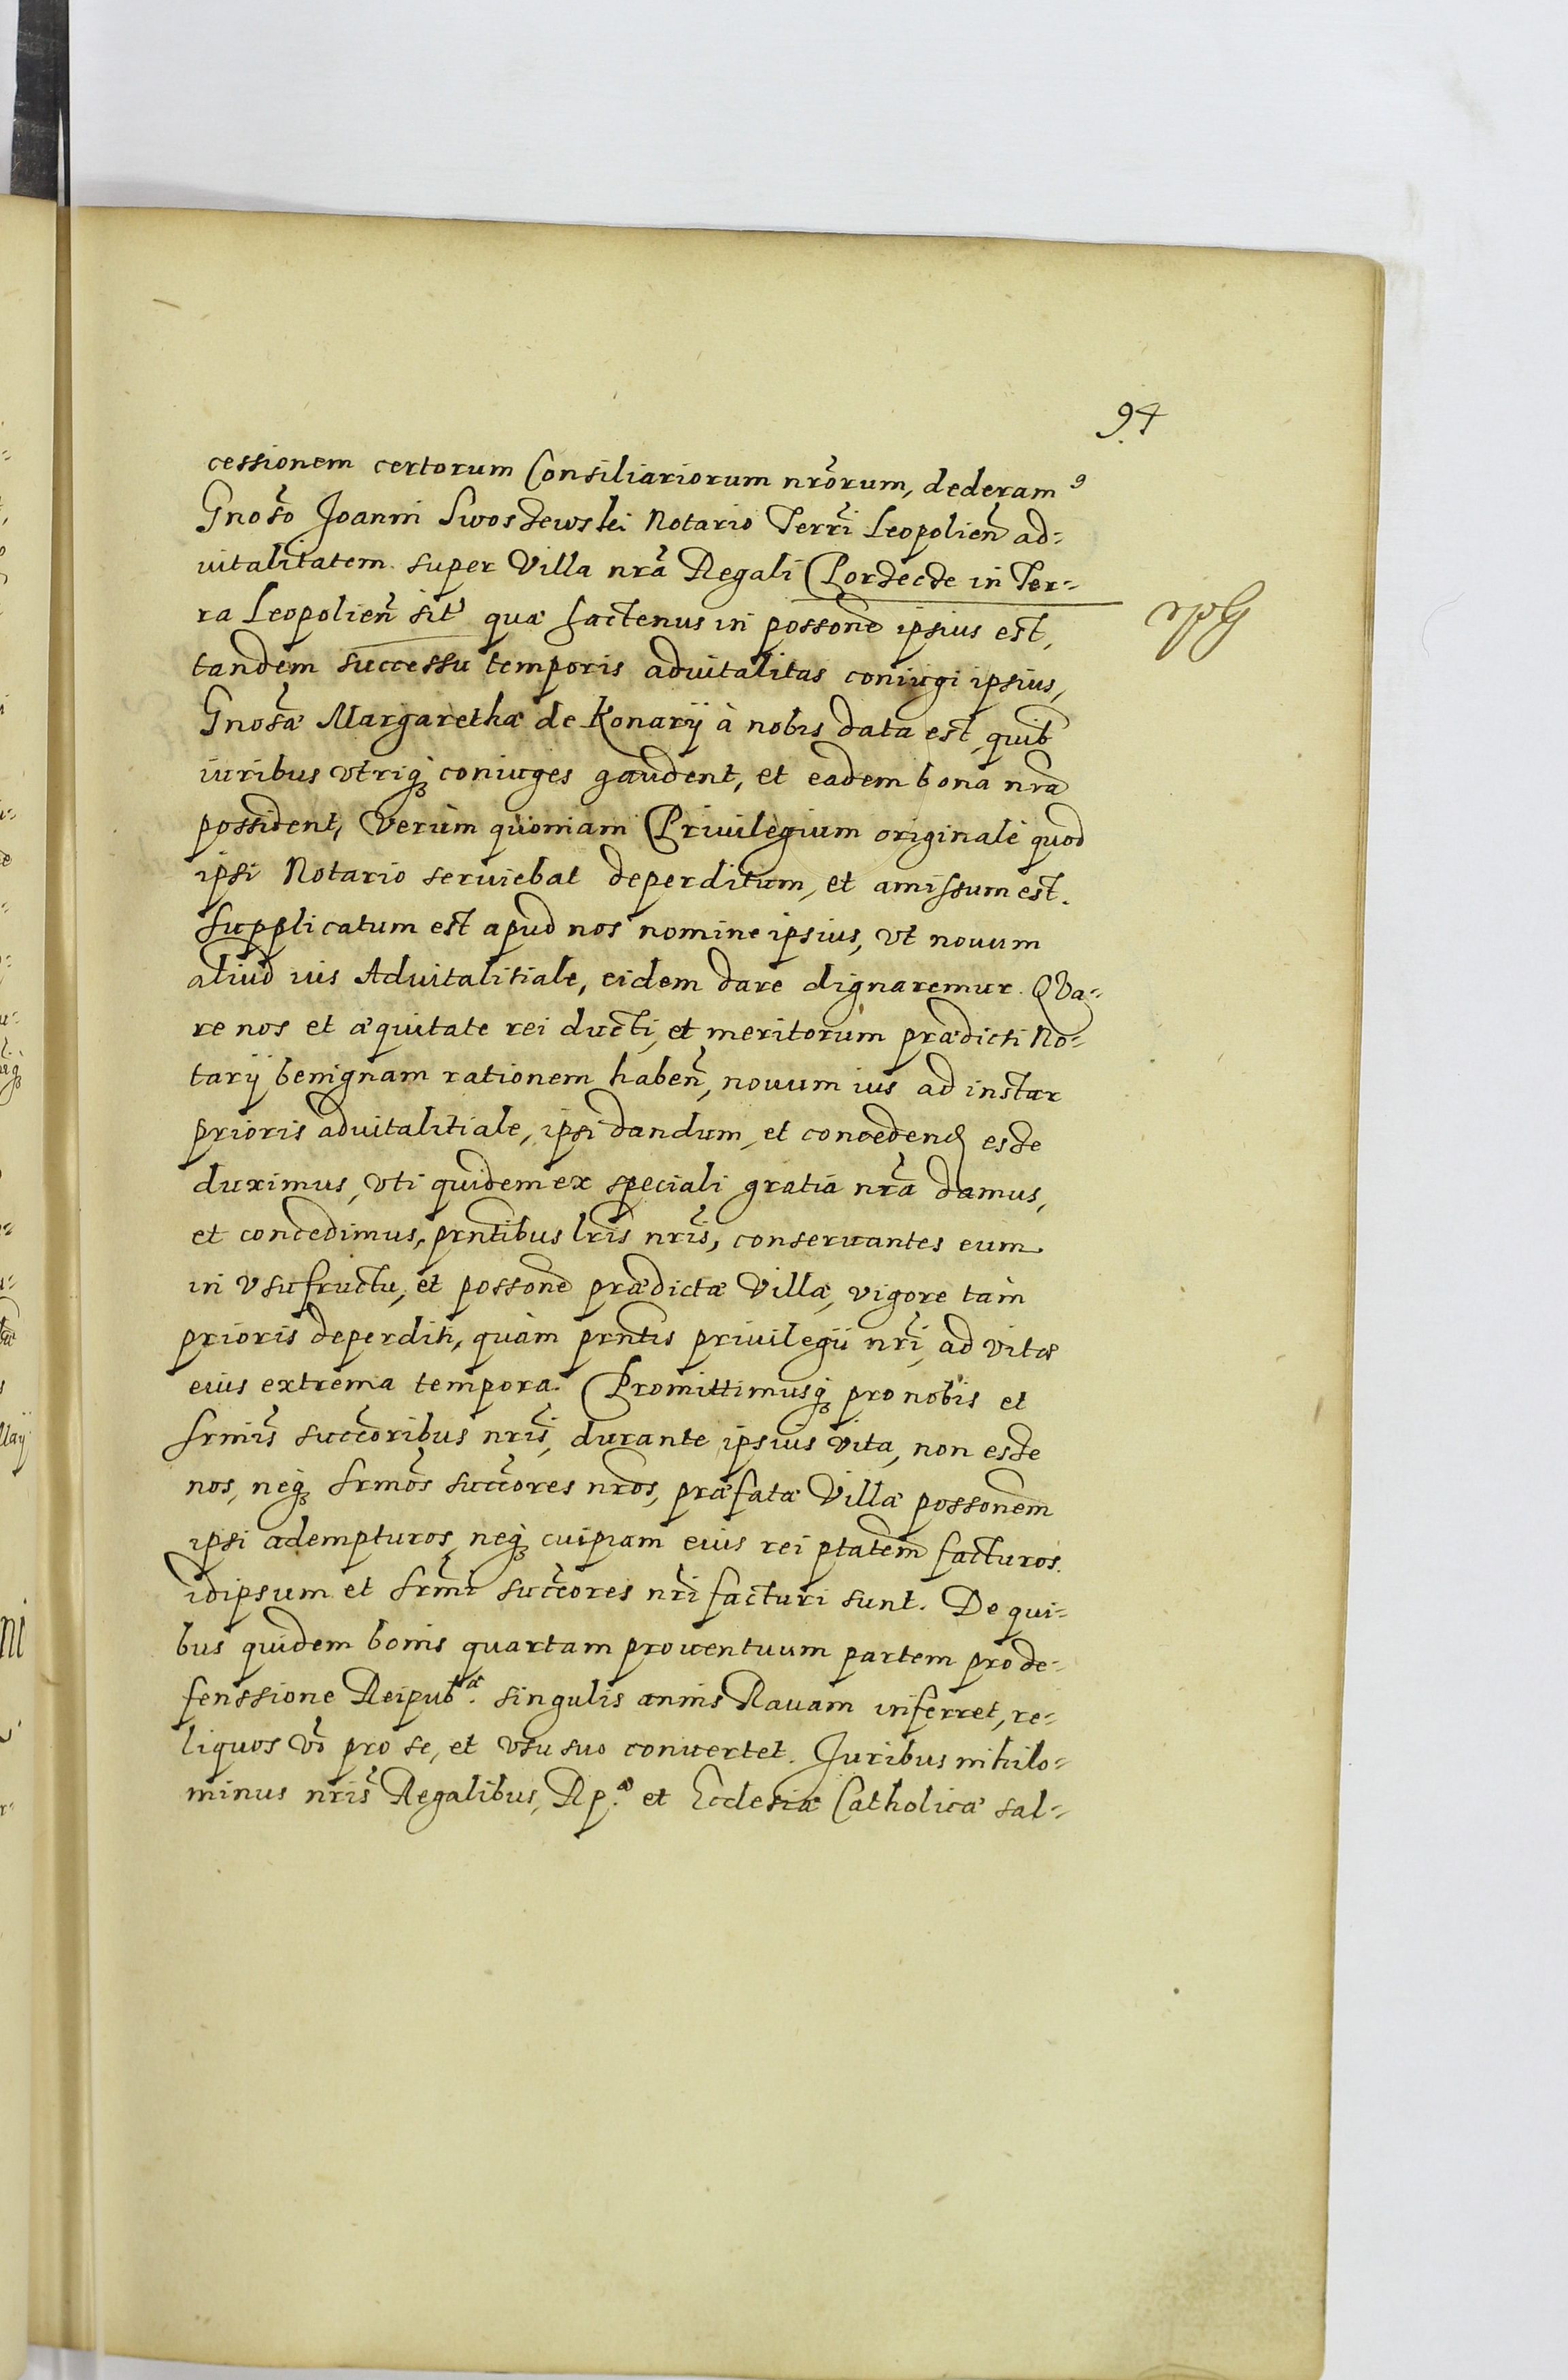 94
cessionem certorum Consiliariorum nr̃orum, dederam⁹
Gnoso Joanni Swoszewski Notario Terrĩ Leopolien̄ ad-
uitalitatem super Villa nr̃a Regali Porzecze in Ter-
ra Leopolien̄ sit' quæ hactenus in possone ipsius est,
tandem successu temporis aduitalitas coniugi ipsius,
Gnosæ Margarethæ de Konarÿ à nobis data est, quib
iuribus vtriq3 coniuges gaudent, et eadem bona nra
possident, Verùm quoniam Priuilegium originale quod
ipsi Notario seruiebat deperditum, et amissum est.
Supplicatum est apud nos nomine ipsius, vt nouum
aliud ius Aduitalitiale, eidem dare dignaremur. QVa-
re nos et æquitate rei ducti, et meritorum prædicti No-
tarÿ benignam rationem haben̄, nouum ius ad instar
prioris aduitalitiale, ipsi dandum, et concedend esse
duximus, vti quidem ex speciali gratia nr̃a damus,
et concedimus, prntibus lris nr̃is, conseruantes eum
in vsufructu, et possone prædictæ Villæ, vigore tàm
prioris deperditi, quàm prntis priuilegii nr̃i, ad vitæ
eius extrema tempora. Promittimusq3 pro nobis et
Srmis succoribus nr̃is, durante ipsius vita, non esse
nos, neq3 Srmos succores nros, præfatæ Villæ possonem
ipsi adempturos, neq3 cuipiam eius rei ptatem facturos.
idipsum et Srmi succores nr̃i facturi sunt. De qui-
bus quidem bonis quartam prouentuum partem pro de-
fenssione Reipubᶜᵃ. singulis annis Rauam inferret, re-
liquos vō pro se, et vsu suo conuertet. Juribus nihilo-
minus nr̃is Regalibus, Rp.ᵃᵉ et Ecclesiæ Catholicæ sal-